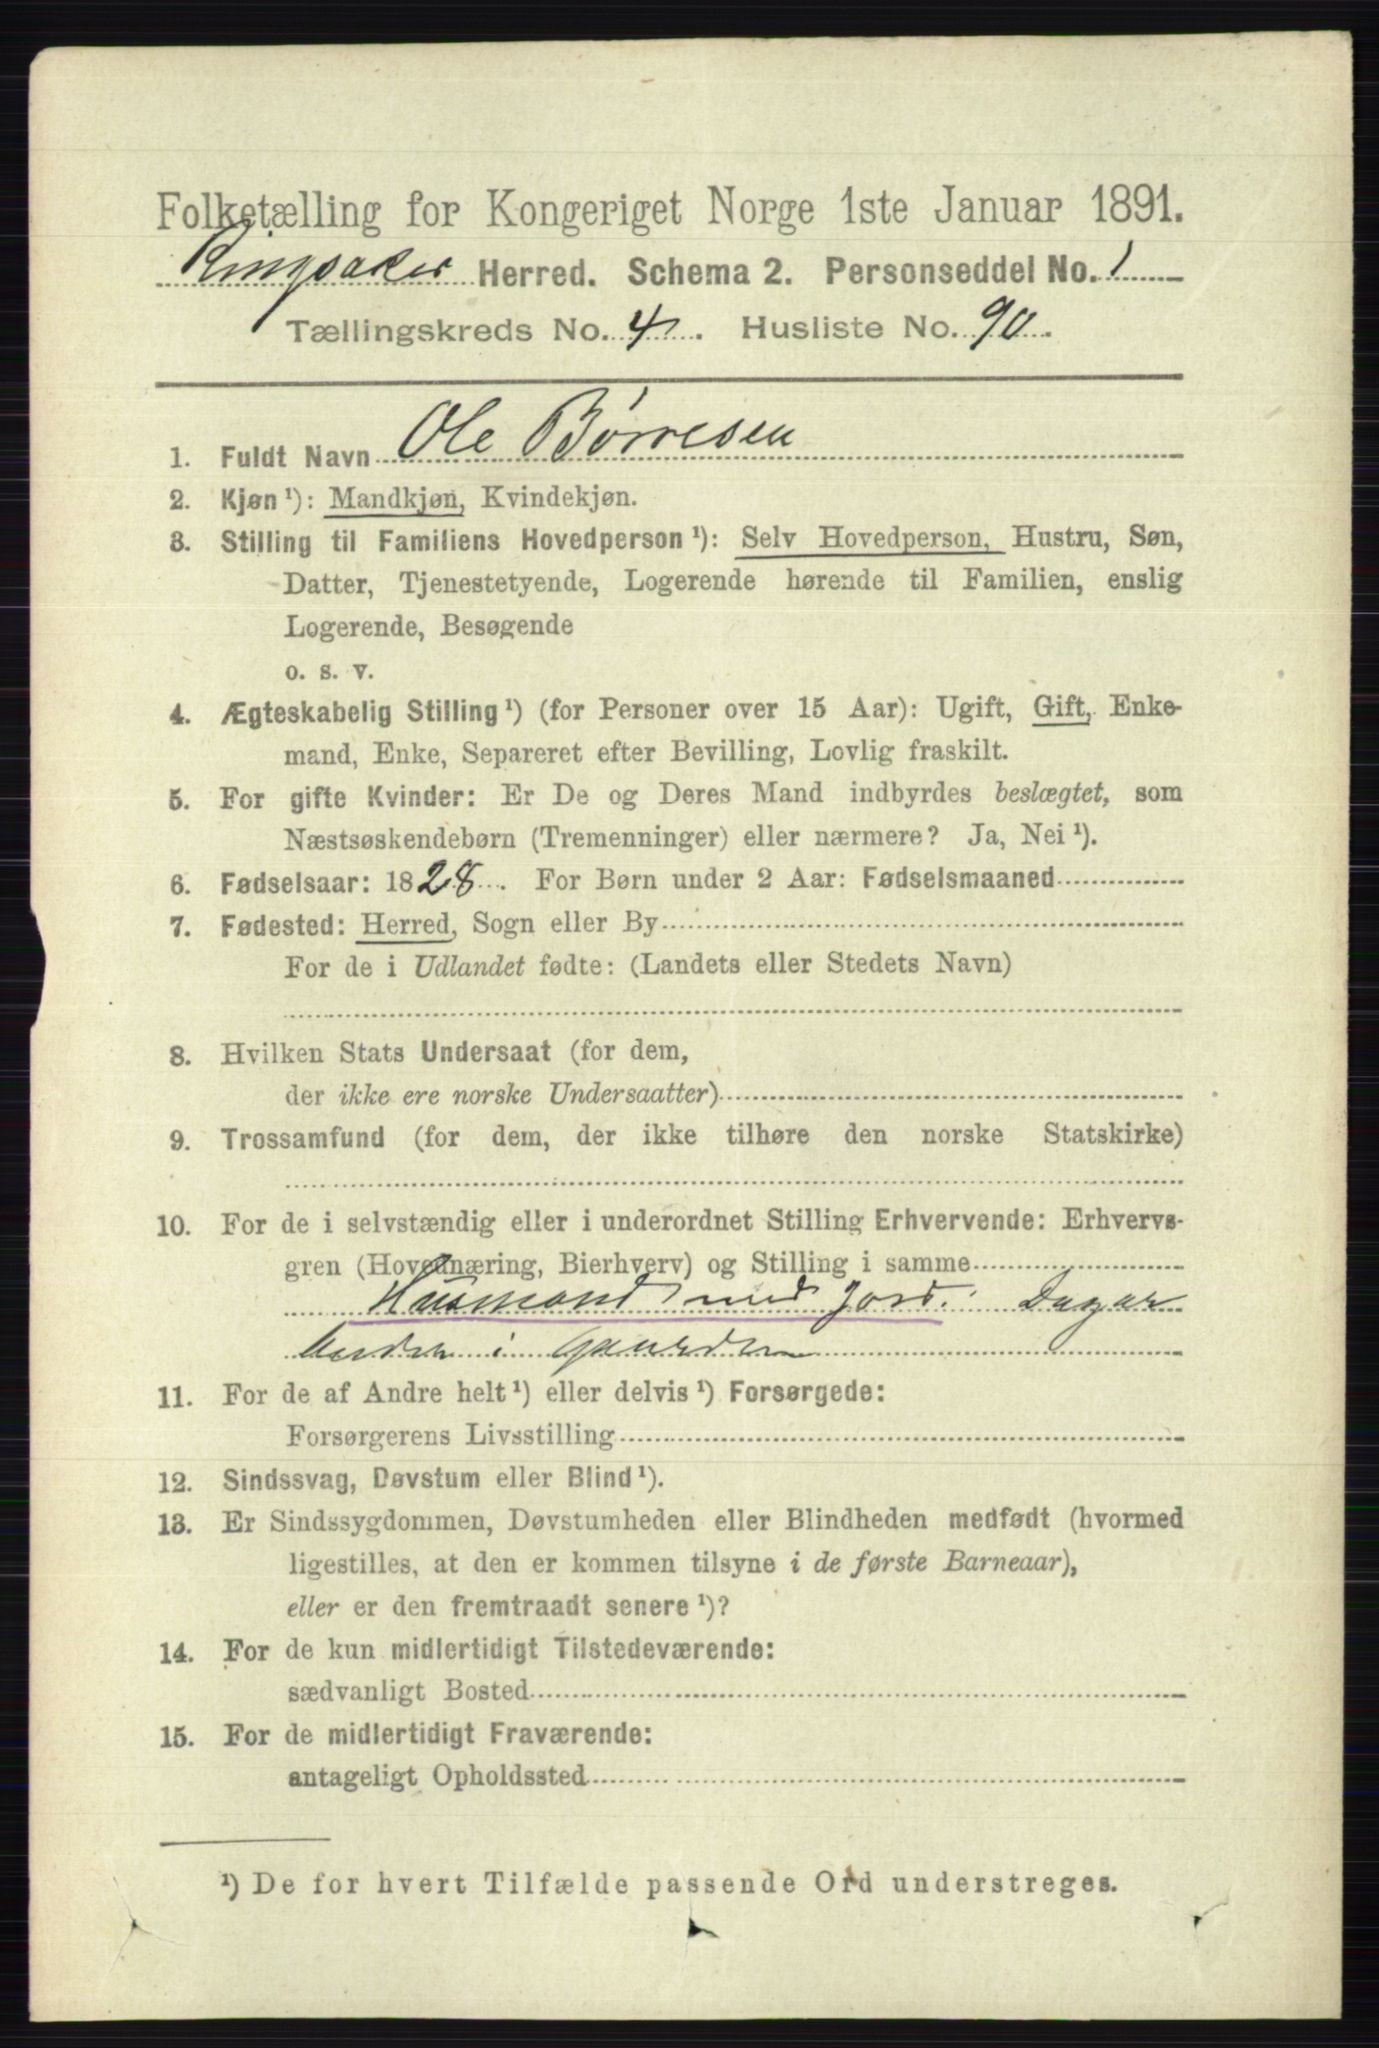 Folketælling for Kongeriget Norge 1ste Januar 1891.
Ringsaker Herred. Schema 2. Personseddel No. 1
Tællingskreds No. 4. Husliste No. 90.
1. Fuldt Navn Ole Børresen
2. Kjøn ¹): Mandkjøn, Kvindekjøn.
3. Stilling til Familiens Hovedperson ¹): Selv Hovedperson, Hustru, Søn,
Datter, Tjenestetyende, Logerende hørende til Familien, enslig
Logerende, Besøgende
o. s. v.
4. Ægteskabelig Stilling ¹) (for Personer over 15 Aar): Ugift, Gift, Enke-
mand, Enke, Separeret efter Bevilling, Lovlig fraskilt.
5. For gifte Kvinder: Er De og Deres Mand indbyrdes beslægtet, som
Næstsøskendebørn (Tremenninger) eller nærmere? Ja, Nei ¹).
6. Fødselsaar: 1828. For Børn under 2 Aar: Fødselsmaaned
7. Fødested: Herred, Sogn eller By
For de i Udlandet fødte: (Landets eller Stedets Navn)
8. Hvilken Stats Undersaat (for dem,
der ikke ere norske Undersaatter)
9. Trossamfund (for dem, der ikke tilhøre den norske Statskirke)
10. For de i selvstændig eller i underordnet Stilling Erhvervende: Erhvervs-
gren (Hovednæring, Bierhverv) og Stilling i samme
Husmand med Jord. Dagar
beider i Gaarden
11. For de af Andre helt ¹) eller delvis ¹) Forsørgede:
Forsørgerens Livsstilling
12. Sindssvag, Døvstum eller Blind ¹).
13. Er Sindssygdommen, Døvstumheden eller Blindheden medfødt (hvormed
ligestilles, at den er kommen tilsyne i de første Barneaar),
eller er den fremtraadt senere ¹)?
14. For de kun midlertidigt Tilstedeværende:
sædvanligt Bosted
15. For de midlertidigt Fraværende:
antageligt Opholdssted
¹) De for hvert Tilfælde passende Ord understreges.